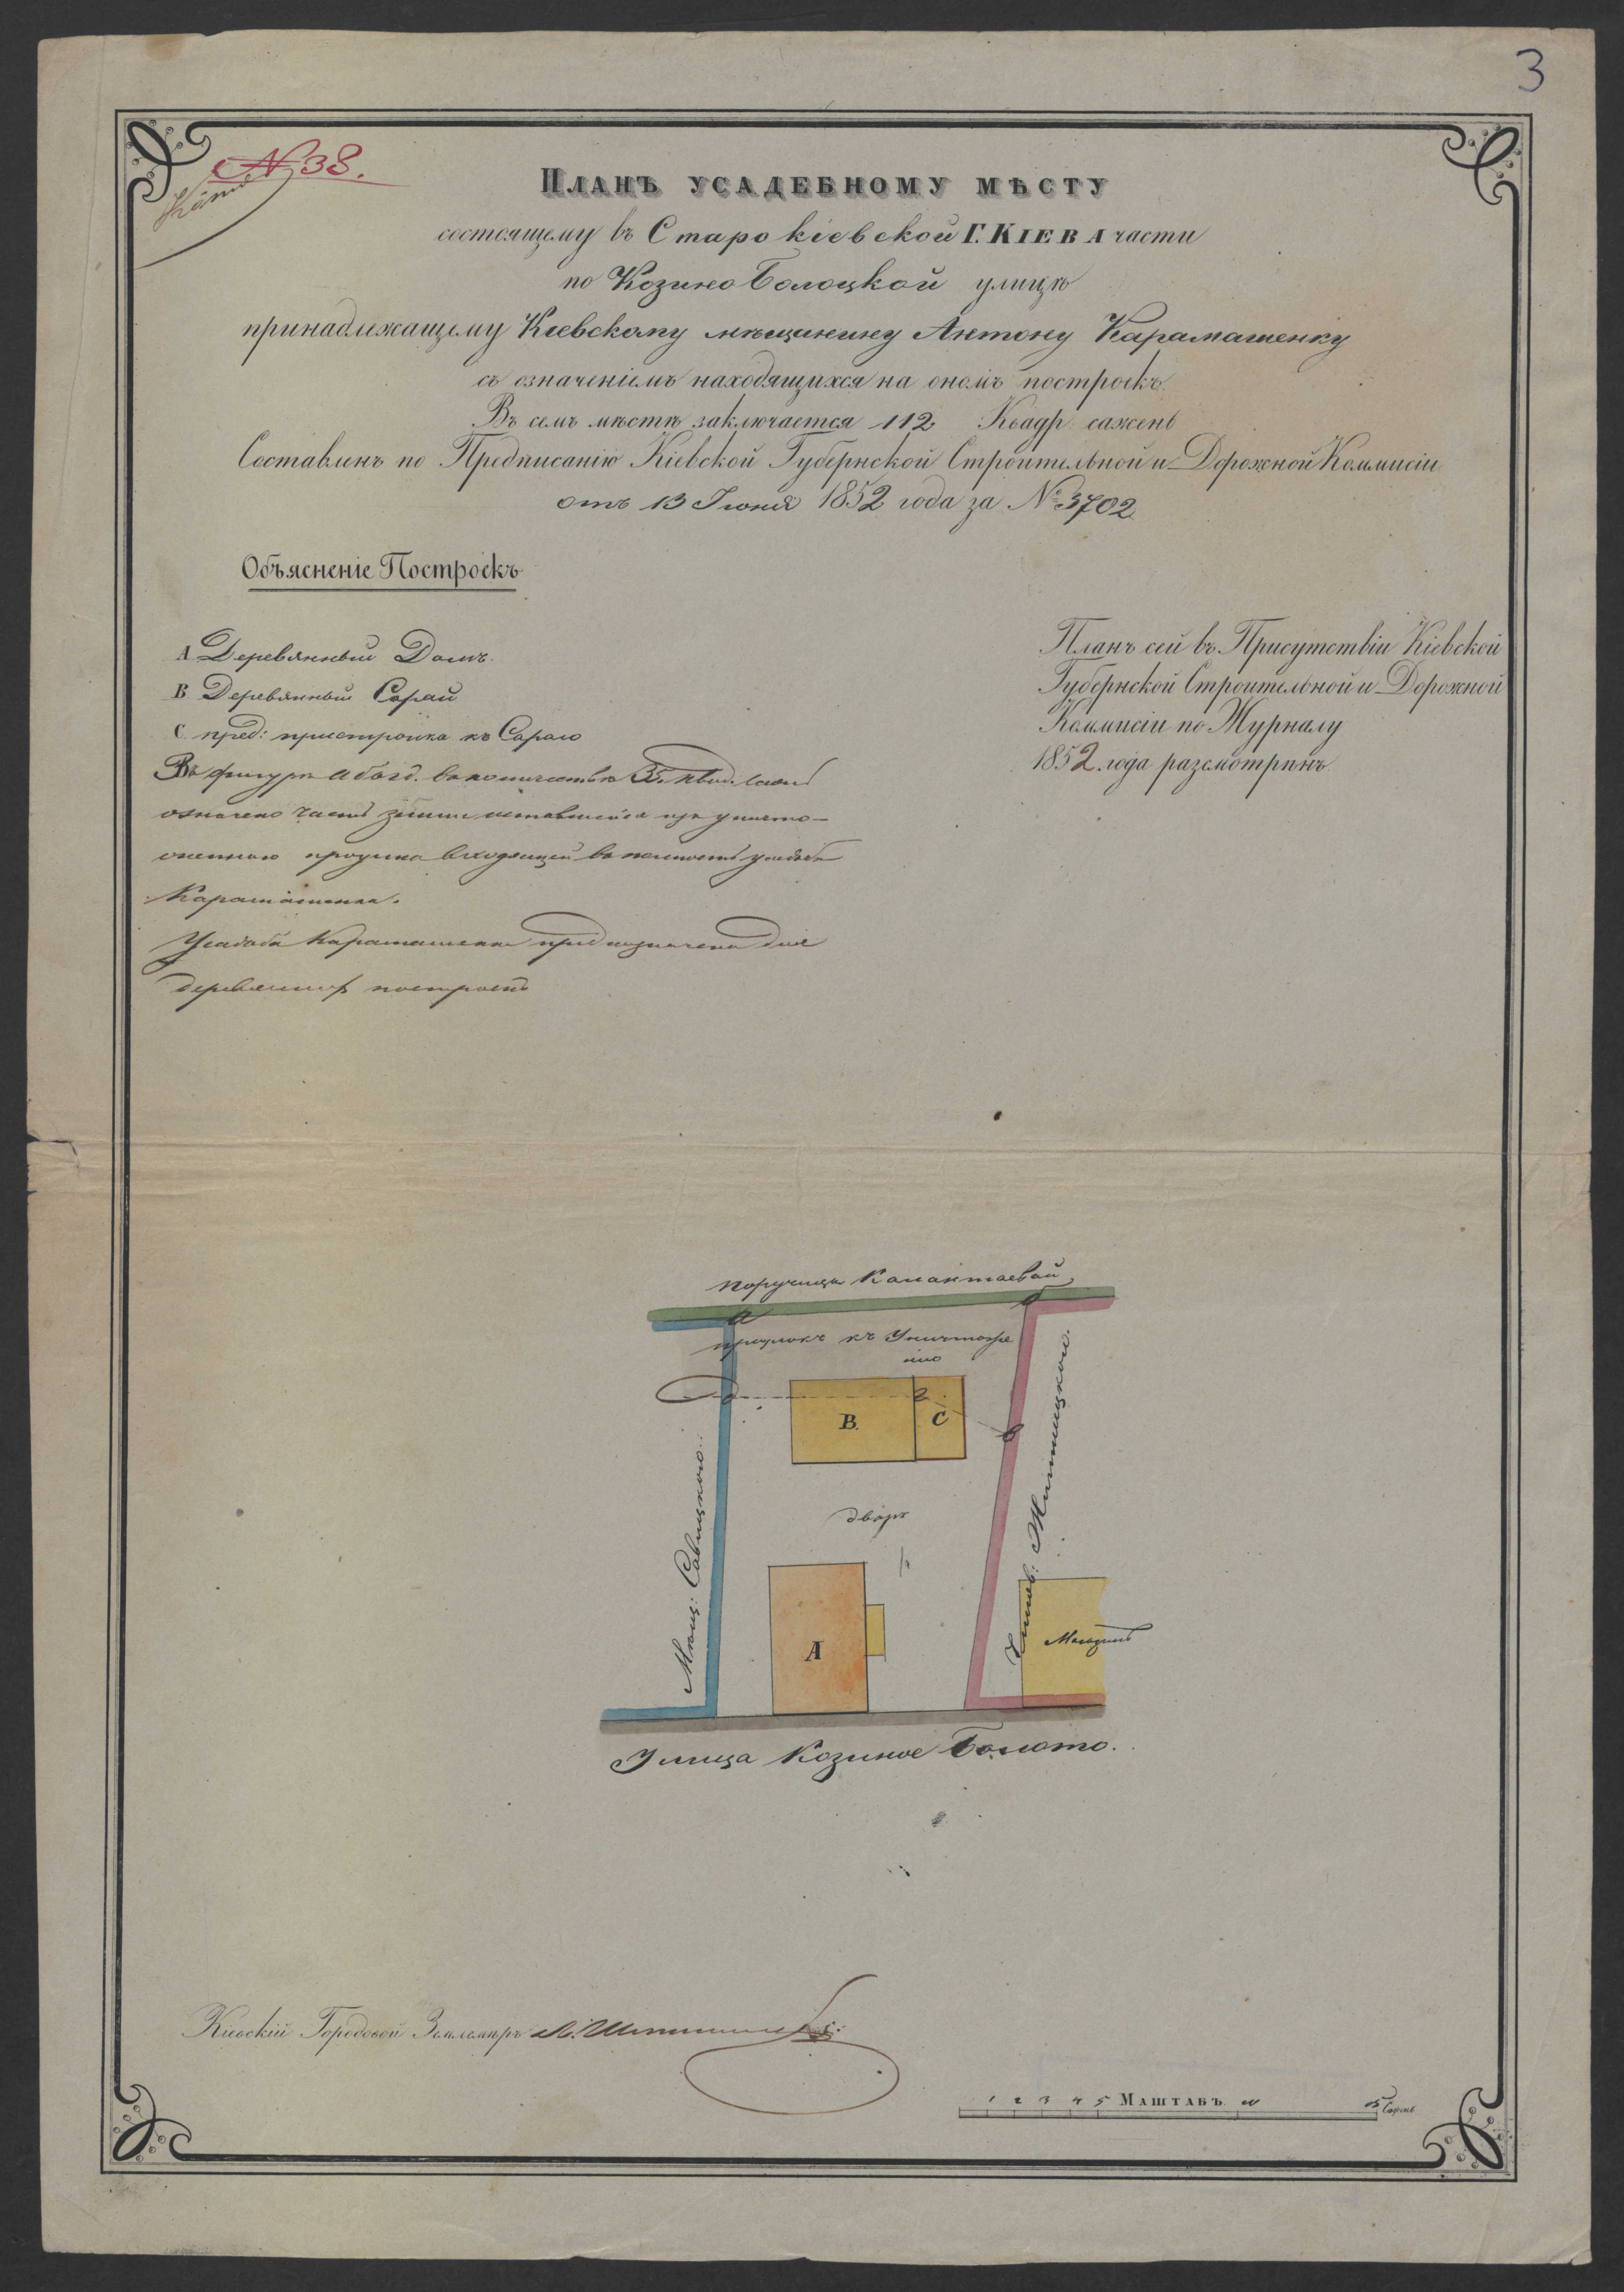 3
№ 38.
Планъ усадебному мѣсту
состоящему въ Старокіевской Г. Кіева части
по Козино Болоцкой улицѣ
принадлежащему Кіевскому мѣщанину Антону Карамашенку
съ означеніемъ находящихся на ономъ построекъ.
Въ семъ мѣстѣ заключается 112 Квадр: сажень
Составленъ по Предписанію Кіевской Губернской Строительной и Дорожной Коммисіи
отъ 13 Іюня 1852 года за № 3702.
Объясненіе Построекъ
А Деревянный Домъ.
В Деревянный Сарай
С. пред: пристройка къ Сараю
Въ фигурѣ абвгд. въ количествѣ 35. квад. саж
означено часть земли оставшейся при уничто-
женіи проулка входящей въ усадьбы
Карамашенка.
Усадьба Карамашенка предназначена для
деревянныхъ построекъ
Планъ сей въ Присутствіи Кіевской
Губернской Строительной и Дорожной
Коммисіи по Журналу
1852 года разсмотрѣнъ.
поручицы
а б
проулокъ къ Уничтоже
нію
д г в
В. С
дворъ
Мѣщ: Савицкаго.
А
Магазинъ
Улица Козиное Болото.
Кіевскій Городовой Землемѣръ
1 2 3 4 5 Маштабъ 10 15 Сажень